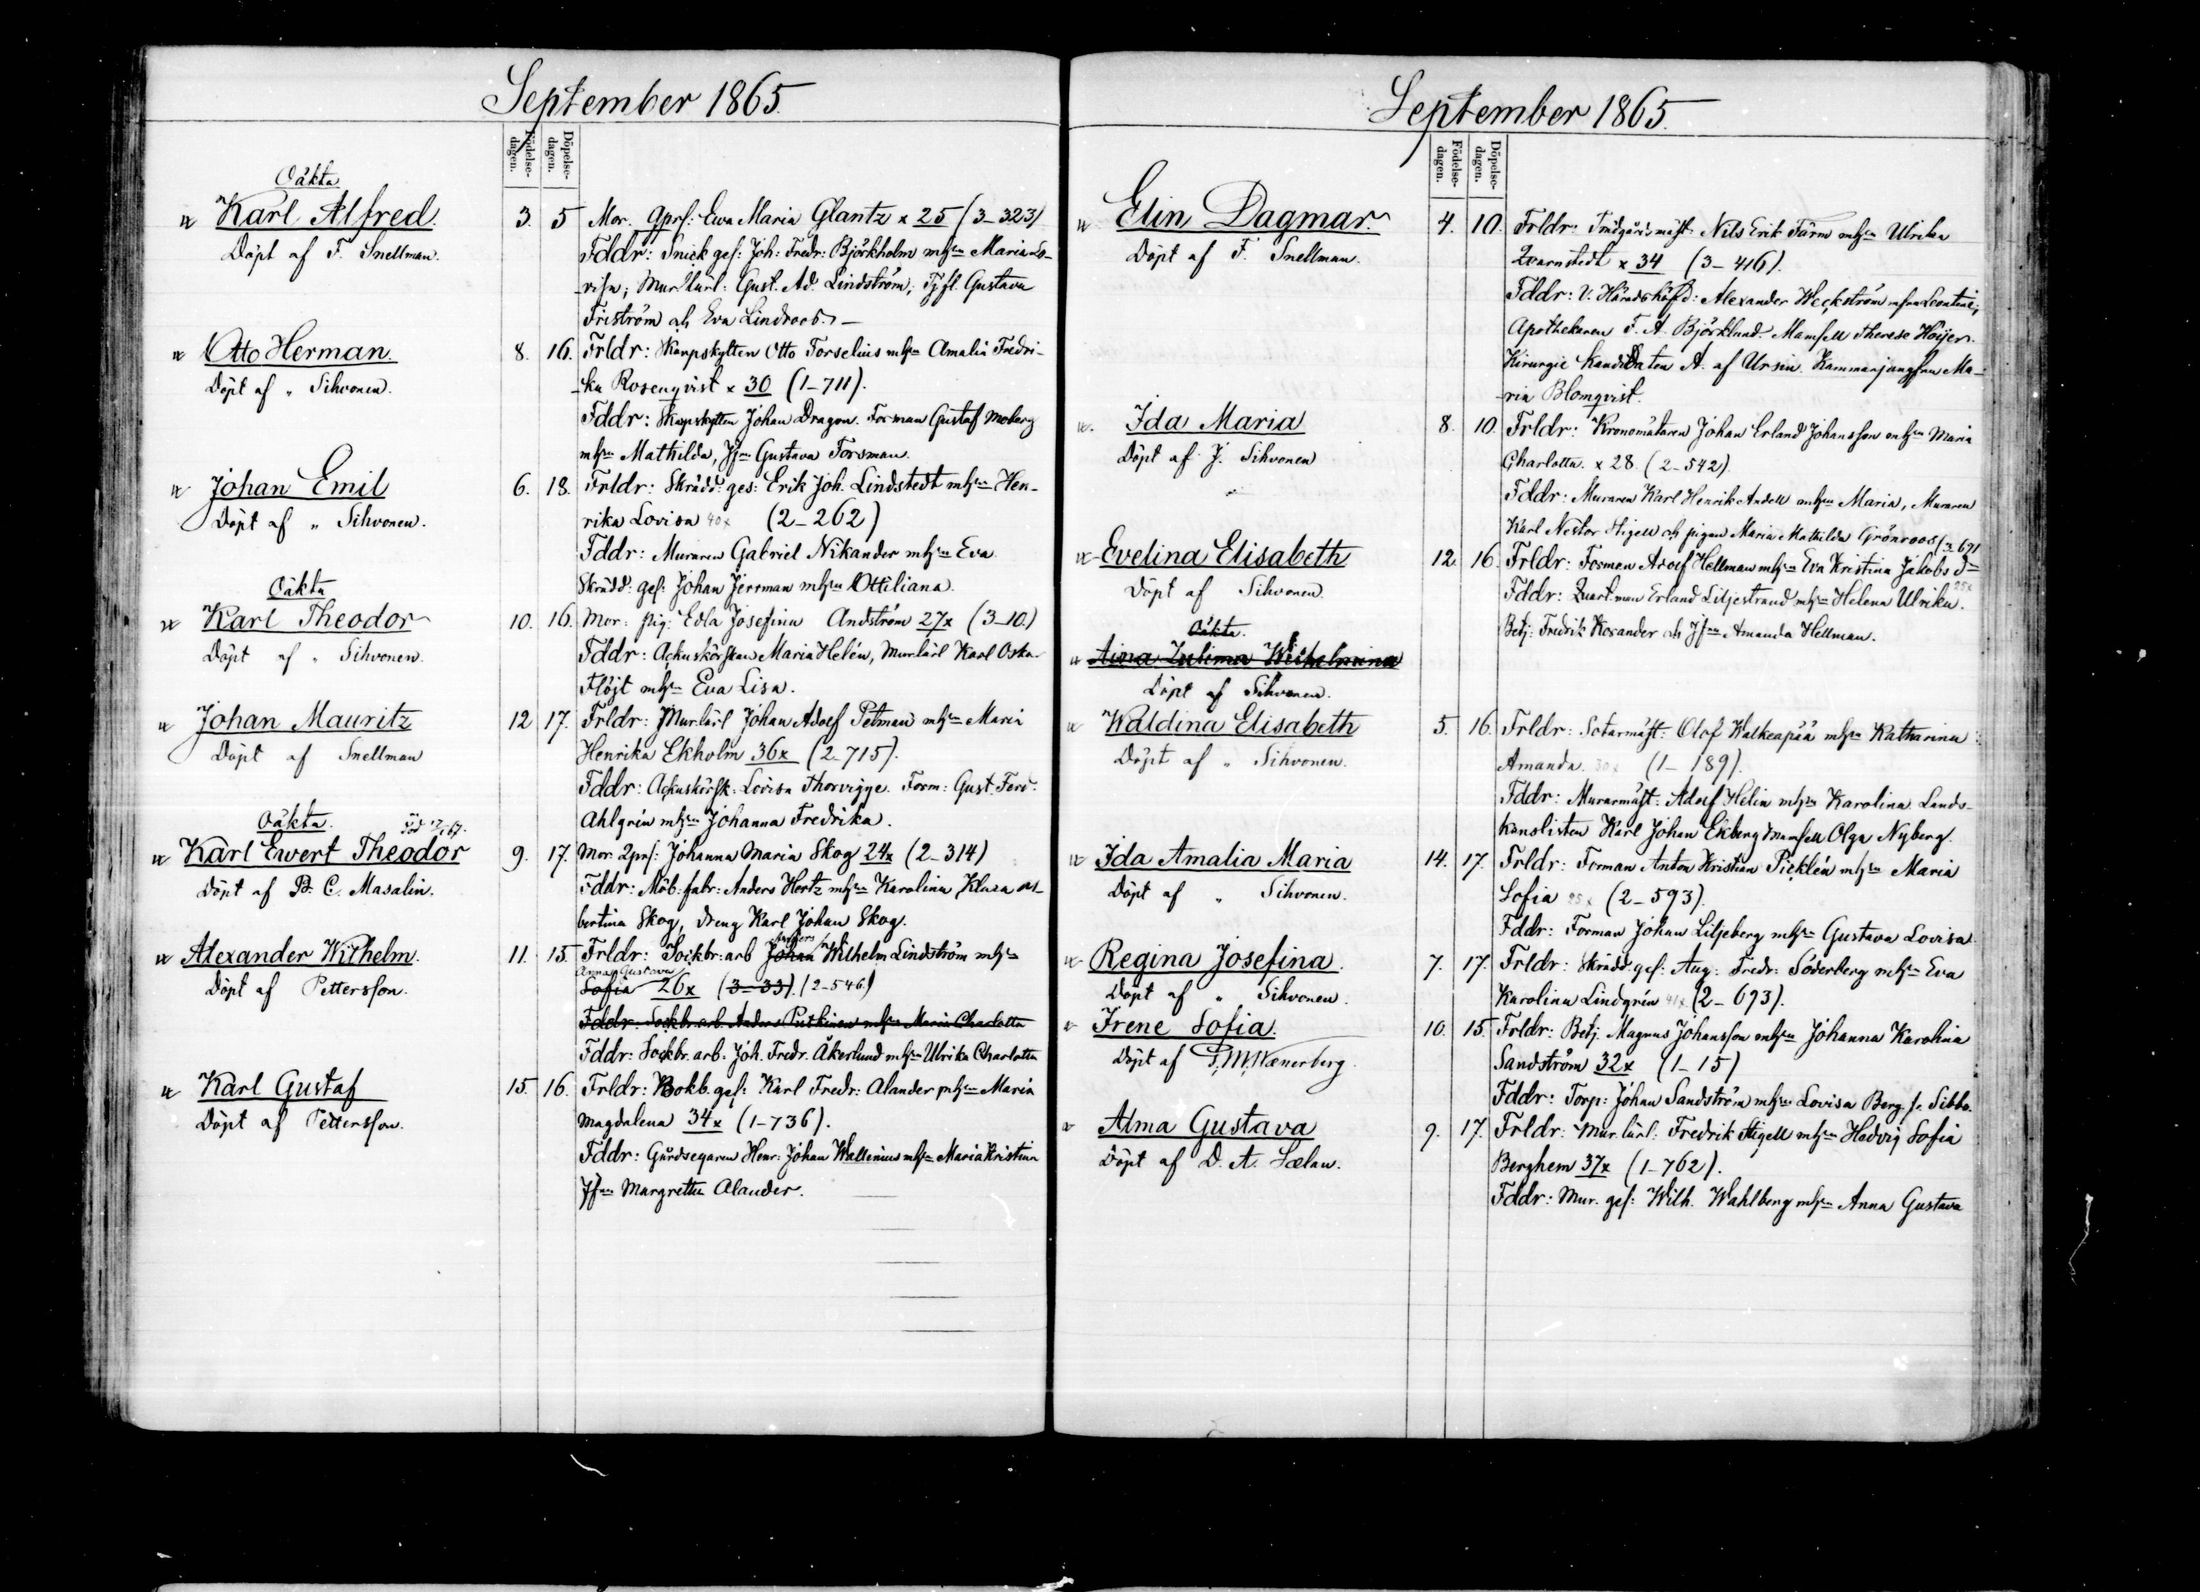 September 1865
Födelse-dagen. Döpelse-dagen.
Oäkta
Karl Alfred. 3. 5 Mor. Qprs: Eva Maria Glantz x 25 (3-323)
Döpt af F. Snellman. Fddr: Snick. ges: Joh: Fredr: Björkholm mhSn Maria Lo-
-visa; Murlärl: Gust. Ad. Lindström; Tjfl. Gustava
Friström och Eva Lindroos. —
Otto Herman. 8. 16. Frldr: Skarpskytten Otto Forselius mhSn Amalia Fredri-
Döpt af " Sihvonen. -ka Rosenqvist x 30 (1-711).
Fddr: Skarpskytten Johan Dragon. Forman Gustaf Moberg
mhSn Mathilda, Jfn Gustava Forsman.
Johan Emil 6. 18. Frldr: Skrädd: ges: Erik Joh. Lindstedt mhSn Hen-
Döpt af " Sihvonen. rika Lovisa 40x (2-262)
Fddr: Muraren Gabriel Nikander mhSn Eva
Skrädd: ges: Johan Jerrman mhSn Ottiliana.
Oäkta
Karl Theodor 10. 16. Mor: pig: Edla Josefina Andström 27x (3-10.)
Döpt af " Sihvonen. Fddr: Maria Helén, Murlärl Karl Oska-
Flöjt mhSn Eva Lisa.
Johan Mauritz 12 17. Frldr: Murlärl Johan Adolf Petman mhSn Maria
Döpt af Snellman Henrika Ekholm 36x (2-715).
Fddr: Lovisa Thorvigge. Form: Gust. Ferd.
Ahlgrén mhSn Johanna Fredrika.
Oäkta.
Karl Ewert Theodor 9. 17. Mor. Qprs: Johanna Maria Skog 24x (2-314)
Döpt af B. C. Masalin. Fddr: Möb. fabr: Anders Hertz mhSn Karolina Klara Al-
bertina Skog, dreng Karl Johan Skog.
Alexander Wilhelm. 11. 15. Frldr: Sockbr: arb Johan Wilhelm Lindström mhSn
Anna Gustava
Döpt af Pettersson. Sofia 26x (3-33). (2-546)
Fddr: Sockbr. arb. Anders Puskinen mhSn Maria Charlotta
Fddr: Sockbr. arb: Joh. Fredr. Åkerlund mhSn Ulrika Charlotta
Karl Gustaf 15. 16. Frldr: Bokb. ges: Karl Fredr: Alander mhSn Maria
Döpt af Pettersson. Magdalena 34x (1-736).
Fddr: Gårdsegaren Henr: Johan Wallenius mhSn Maria Kristina
Jfn Margretha Alander.
September 1865
Födelse-dagen. Döpelse-dagen.
Elin Dagmar. 4. 10. Frldr: Trädgårdsmäst: Nils Erik Färm mhSn Ulrika
Döpt af F. Snellman. Qvarnstedt x 34 (3-416).
Fddr: V: Häradshöfd: Alexander Weckström mhSn Leontine;
Apothekaren F. A. Björklund. Mamsell Therese Höijer.
Kirurgie Kandidaten A. af Ursin. Kammarjungfrun Ma-
-ria Blomqvist.
Ida Maria 8. 10. Frldr: Kronomätaren Johan Erland Johansson mhSn Maria
Döpt af J. Sihvonen Charlotta. x 28. (2-542).
Fddr: Muraren Karl Henrik Andell mhSn Maria, Muraren
Karl Nestor Stigell och pigan Maria Mathilda Grönroos (3-671
Evelina Elisabeth 12. 16. Frldr: Forman Adolf Hellman mhSn Eva Kristina Jakobs dr
Döpt af Sihvonen. Fddr: Qvart.man Erland Liljestrand mhSn Helena Ulrika. 25x
Betj: Fredrik Kosander och Jfn Amanda Hellman.
Oäkta.
Aina Zulima Wilhelmina
Döpt af Sihvonen.
Waldina Elisabeth 5. 16. Frldr: Sotarmäst: Olof Walkeapää mhSn Katharina
Döpt af " Sihvonen. Amanda. 30x (1-189).
Fddr: Murarmäst: Adolf Helin mhSn Karolina. Lands-
kanslisten Karl Johan Ekberg Mamsell Olga Nyberg.
Ida Amalia Maria 14. 17. Frldr: Forman Anton Kristian Picklén mhSn Maria
Döpt af " Sihvonen. Sofia 25x (2-593).
Fddr: Forman Johan Liljeberg mhSn Gustava Lovisa
Regina Josefina. 7. 17. Frldr: Skrädd. ges: Aug: Fredr: Söderberg mhSn Eva
Döpt af " Sihvonen. Karolina Lindgrén 41x (2-693).
Irene Sofia. 10. 15. Frldr: Betj. Magnus Johansson mhSn Johanna Karolina
Döpt af Wænerberg. Sandström 32x (1-15)
Fddr: Torp: Johan Sandström mhSn Lovisa Berg. fr. Sibbo.
Alma Gustava 9. 17. Frldr: Mur. lärl: Fredrik Stigell mhSn Hedvig Sofia
Döpt af D. A. Sælan. Berghem 37x (1-762).
Fddr: Mur. ges: Wilh. Wahlberg mhSn Anna Gustava